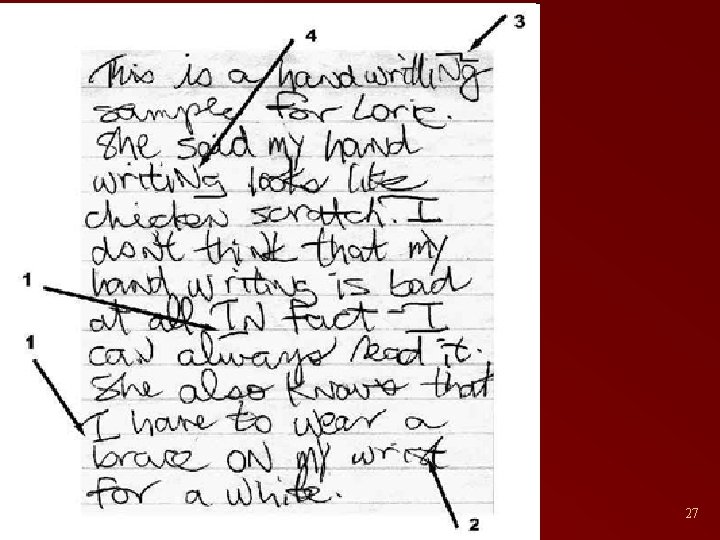 4
3
This is a handwritling
sample for Lorie.
She said my hand
writing looks like
chicken scratch. I
don't think that my
1
hand writing is bad
at all In fact I
1
can always read it.
She also knows that
I have to wear a
brace on my wrist
for a while.
2
27